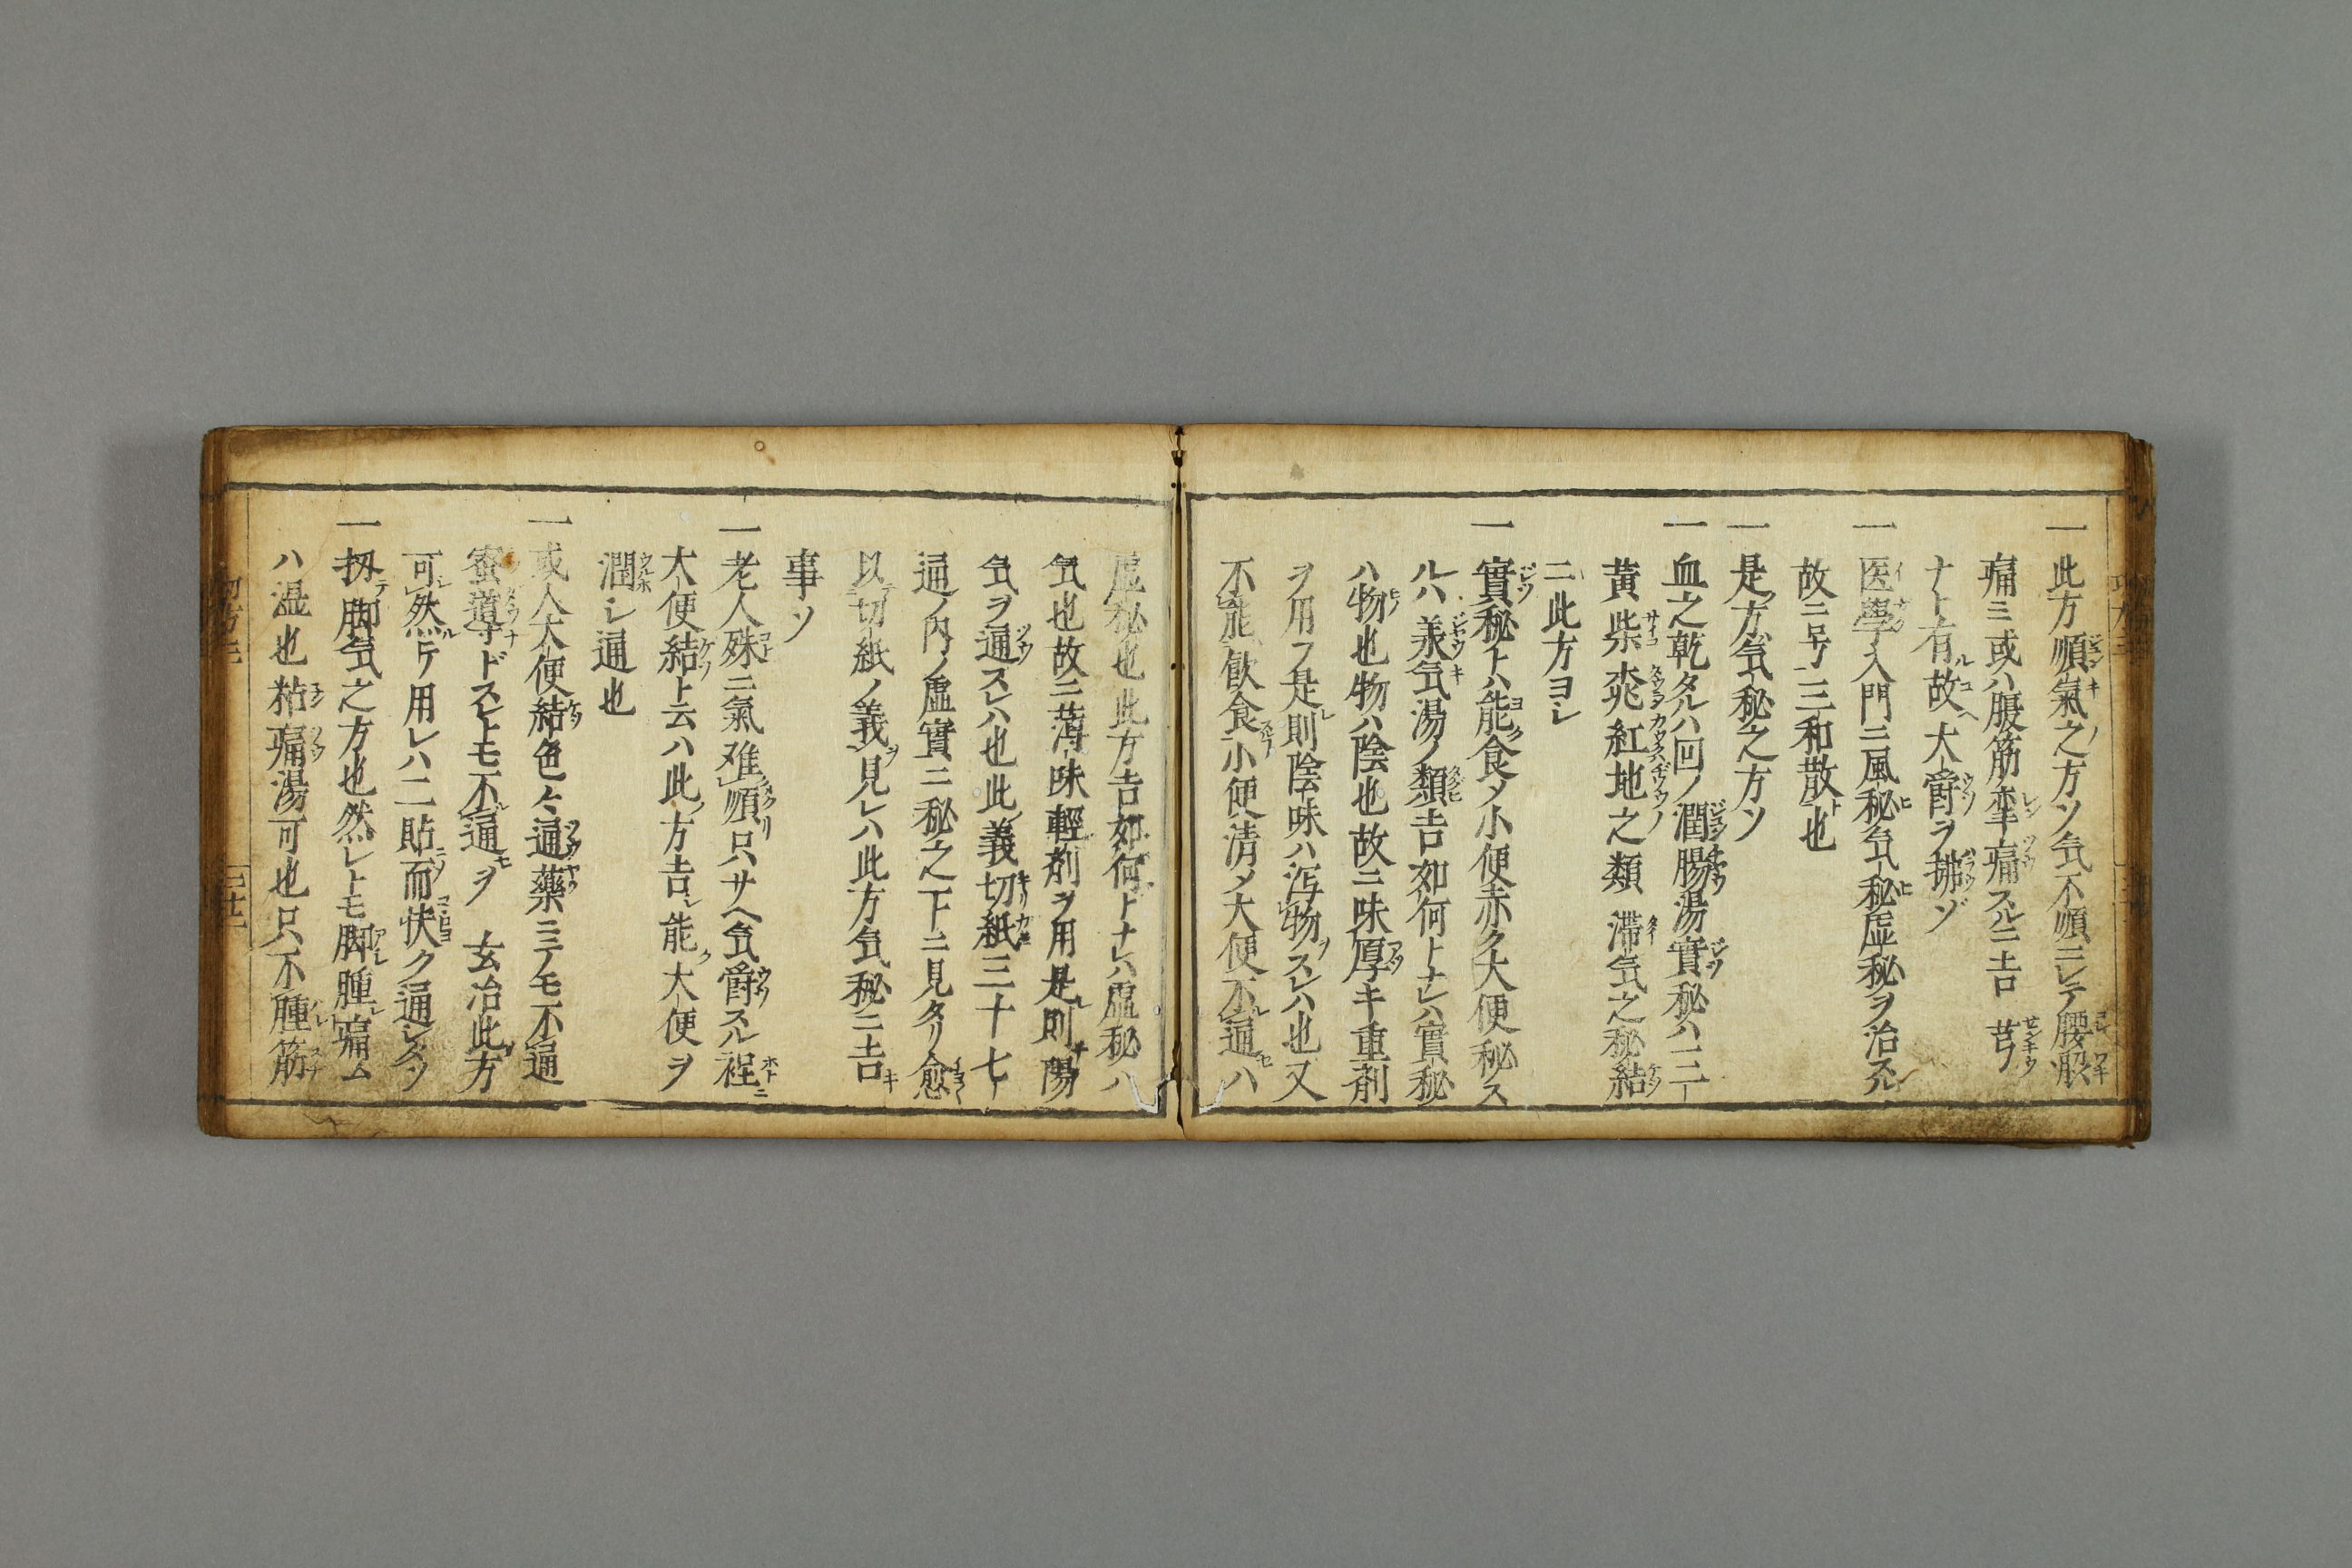 一此方順氣之方ソ気不順ニシテ腰股
痛ミ或ハ腹筋挛痛スルニ吉 芎
ナト有故大欝ヲ拂ゾ
一医學入門ニ風秘気秘虚秘ヲ治スル
故ニ号三和散也
一是方気秘之方ソ
一血之乾タルハ回ノ潤腸湯實秘ハ三一
黄柴桃紅地之類 滞気之秘結
ニ此方ヨシ
一實秘トハ能食メ小便赤ク大便秘ス
ルハ義気湯ノ類吉如何トナレハ實秘
ハ物也物ハ陰也故ニ味厚キ重剤
ヲ用フ是則陰味ハ泻物ヲスレハ也又
不能飲食小便清メ大便不通ハ
虚秘也此方吉如何トナレハ虚秘ハ
気也故ニ薄味輕剤ヲ用是則陽
気ヲ通スレハ也此義切紙三十七ー
通ノ内ノ虚實二秘之下ニ見タリ愈
以切紙ノ義ヲ見レハ此方気秘ニ吉
事ソ
一老人殊ニ氣难順只サヘ気欝スル裎
大便結ト云ハ此方吉能大便ヲ
潤シ通也
一或人大便結色々通藥ニテモ不通
蜜導ドスレトモ不通ヲ 玄冶此方
可然トテ用レハ二貼而快ク通シタソ
一扨脚気之方也然レトモ脚腫痛ム
ハ湿也粘痛湯可也只不腫筋